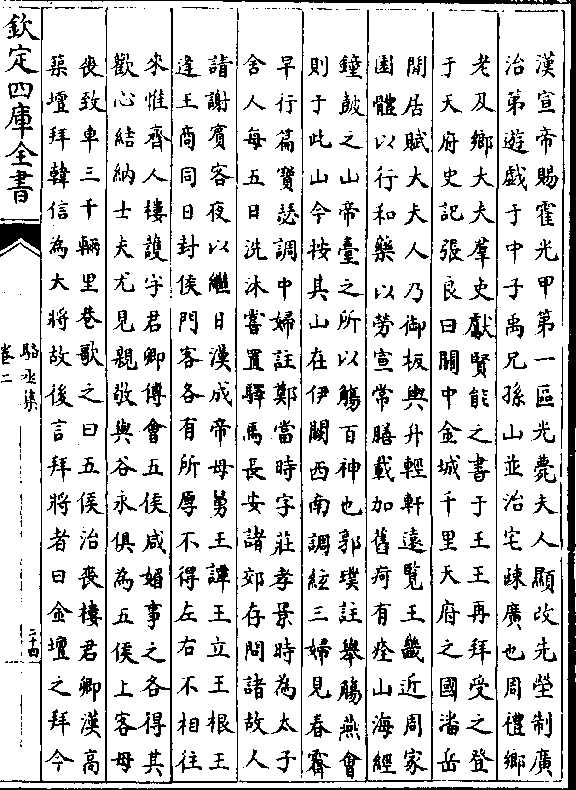 漢宣帝賜霍光甲第一區光薨夫人顯改先塋制廣
治第遊戲于中子禹兄孫山並治宅疎廣也周禮鄉
老及鄉大夫羣吏獻賢能之書于王王再拜受之登
于天府史記張良曰關中金城千里天府之國潘岳
閒居賦大夫人乃御板輿升輕軒遠覽王畿近周家
園體以行和藥以勞宣常膳載加舊疴有痊山海經
鐘鼓之山帝臺之所以觴百神也郭璞註舉觴燕會
則于此山今按其山在伊闕西南調絃三婦見春霽
早行篇寳瑟調中婦註鄭當時字莊孝景時為太子
舍人每五日洗沐嘗置驛馬長安諸郊存問諸故人
請謝賔客夜以繼日漢成帝母舅王譚王立王根王
逢王商同日封侯門客各有所厚不得左右不相往
來惟齊人樓護字君卿傅會五侯咸媚事之各得其
歡心結納士夫尤見親敬與谷永俱為五侯上客母
喪致車三千輛里巷歌之曰五侯治喪樓君卿漢高
築壇拜韓信為大將故後言拜將者曰金壇之拜今
欽定四庫全書
駱丞集
卷二
二十四